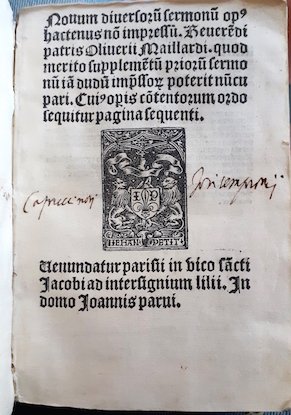 Nouum diuersorũ sermonũ opꝰ
hactenus nõ impressũ. Reuerẽdi
patris Oliuerii Maillardi. quod
merito supplementũ priorũ sermo
nũ iã dudũ imp̃ssoꝝ poterit nũcu
pari. Cuiꝰ opis cõtentorum ordo
sequitur pagina sequenti.
IEHAN PETIT
Venundatur parisii in vico sãcti
Jacobi ad intersignium lilii. In
domo Joannis parui.